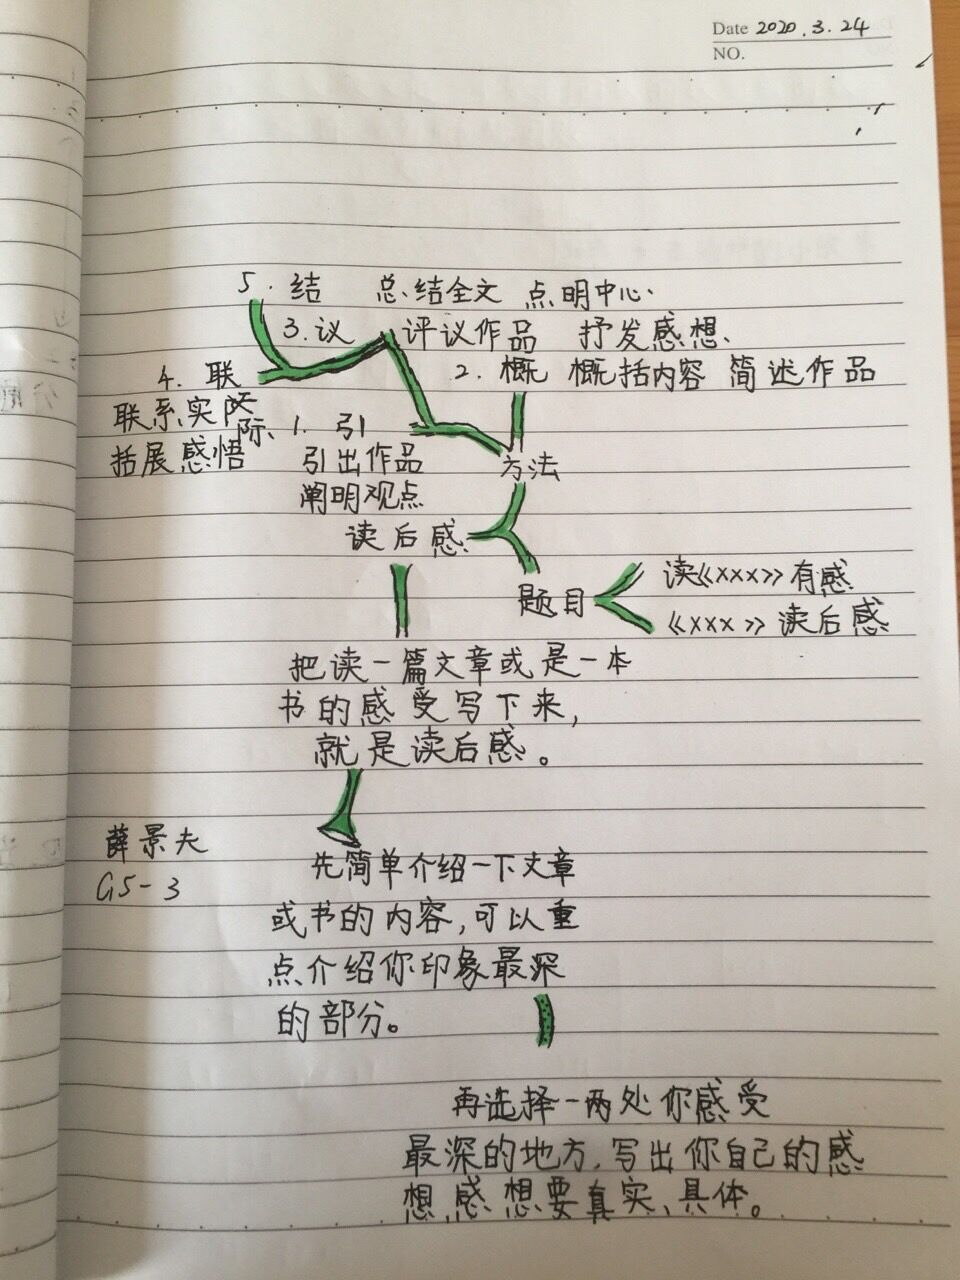 Date 2020.3.24
NO.
5.结 总结全文 点明中心.
3.议 评议作品 抒发感想.
4.联 2.概 概括内容 简述作品
联系实际、1.引
括展感悟 引出作品 方法
阐明观点
读后感.
读《xxx》有感
题目
《xxx》读后感
把读一篇文章或是一本
书的感受写下来,
就是读后感。
薛景夫
G5-3
先简单介绍一下文章
或书的内容,可以重
点介绍你印象最深
的部分。
再选择一两处你感受
最深的地方,写出你自己的感
想,感想要真实、具体。